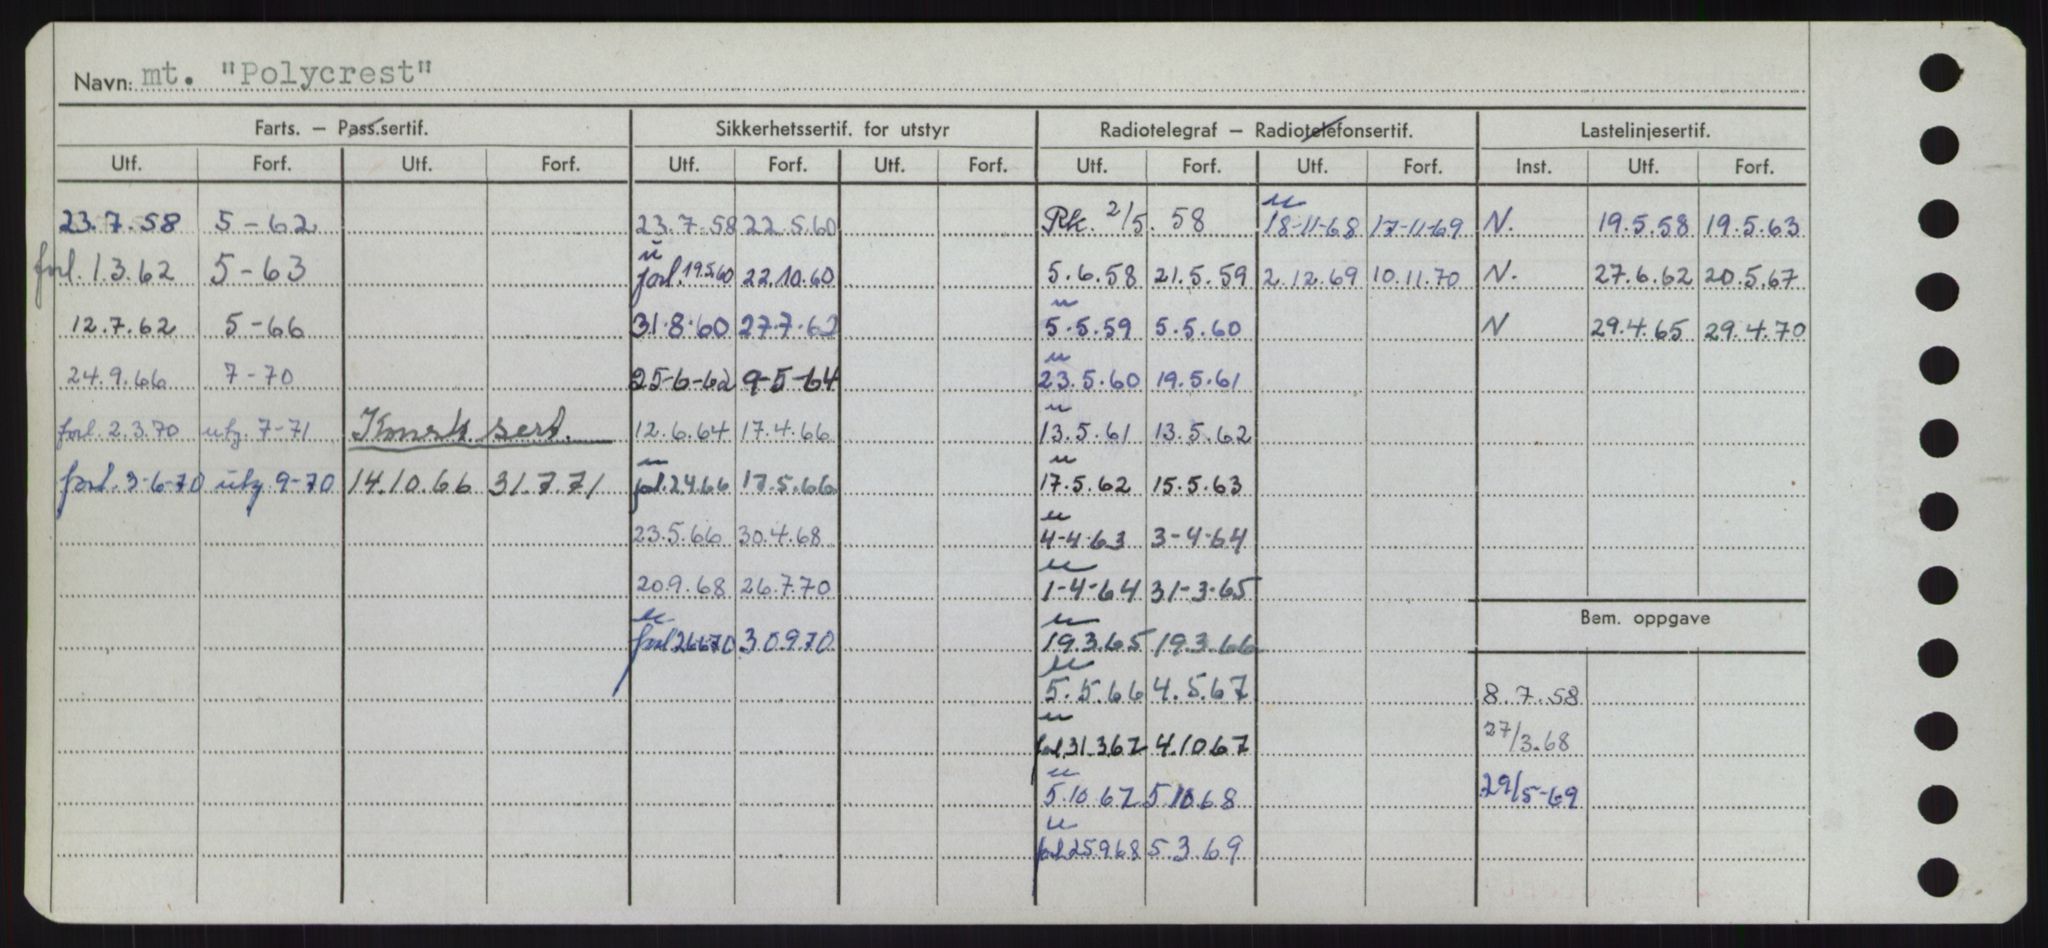 Navn: mt. "Polycrest"
Farts. – Pass.sertif. Sikkerhetssertif. for utstyr Radiotelegraf – Radiotelefonsertif. Lastelinjesertif.
Utf. Forf. Utf. Forf. Utf. Forf. Utf. Forf. Utf. Forf. Utf. Forf. Inst. Utf. Forf.
u u
23.7.58 5-62 23.7.58 22.5.60 Rk. 2/5. 58 18-11-68 17-11-69 N. 19.5.58 19.5.63
forl. 1.3.62 5-63 forl. 19.5.60 22.10.60 5.6.58 21.5.59 2.12.69 10.11.70 N. 27.6.62 20.5.67
u
12.7.62 5-66 31.8.60 27.7.62 5.5.59 5.5.60 N 29.4.65 29.4.70
u
24.9.66 7-70 25-6-62 9-5-64 23.5.60 19.5.61
u
forl. 2.3.70 utg. 7-71 Konstr. sert. 12.6.64 17.4.66 13.5.61 13.5.62
u u
forl. 3-6-70 utg. 9-70 14.10.66 31.7.71 forl. 2.4.66 17.5.66 17.5.62 15.5.63
u
23.5.66 30.4.68 4-4-63 3-4-64
u
20.9.68 26.7.70 1-4-64 31-3-65
u u
forl 26670 30970 19.3.65 19.3.66
Bem. oppgave
u
5.5.66 4.5.67 8.7.58
u
forl 31.3.67 4.10.67 27/3.68
u
5.10.67 5.10.68 29/5-69
u
forl 25968 5.3.69